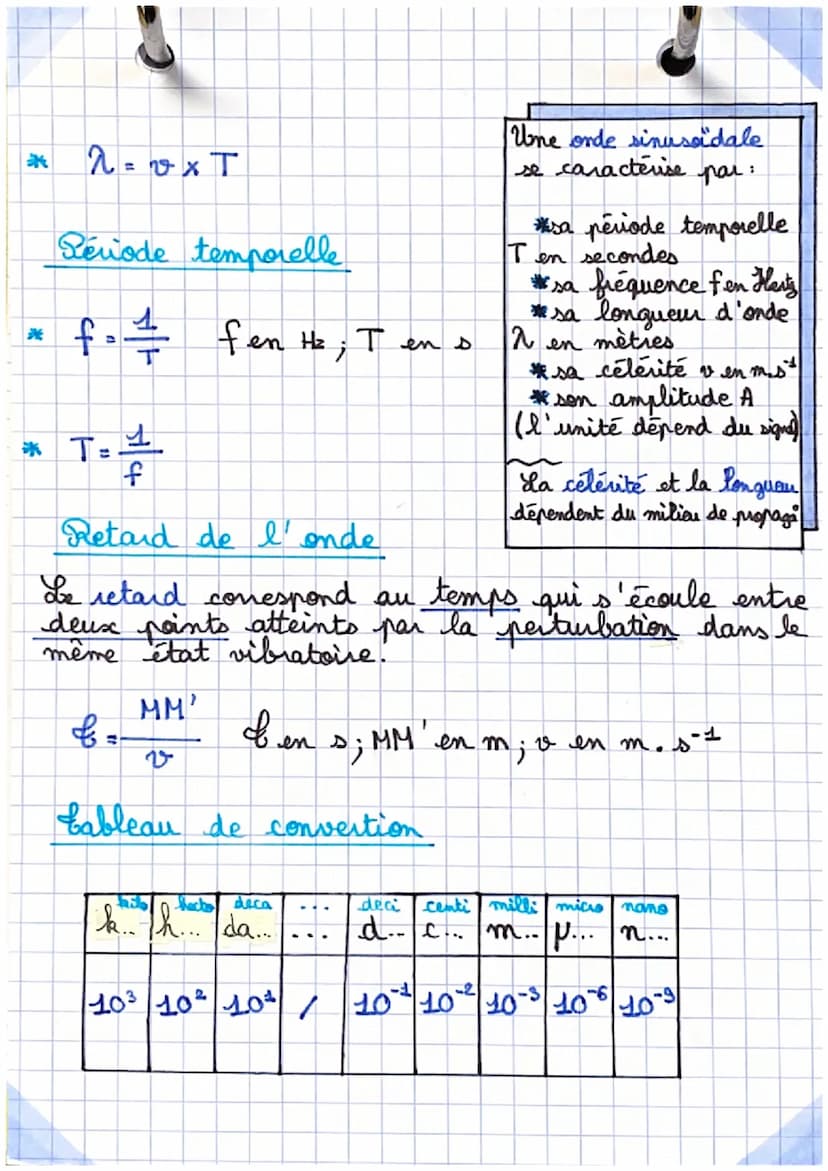 * λ = v x T
Période temporelle
* f = 1/T f en Hz ; T en s
* T = 1/f
Une onde sinusoïdale
se caractérise par :
* sa période temporelle
T en secondes
* sa fréquence f en Hertz
* sa longueur d'onde
λ en mètres
* sa célérité v en m.s⁻¹
* son amplitude A
(l'unité dépend du signal)
La célérité et la longueur
dépendent du milieu de propag°
Retard de l'onde
Le retard correspond au temps qui s'écoule entre
deux points atteints par la perturbation dans le
même état vibratoire.
τ = MM'/v τ en s ; MM' en m ; v en m.s⁻¹
Tableau de convertion
kilo hecto deca ... deci centi milli micro nano
k... h... da... ... d... c... m... µ... n...
10³ 10² 10¹ / 10⁻¹ 10⁻² 10⁻³ 10⁻⁶ 10⁻⁹